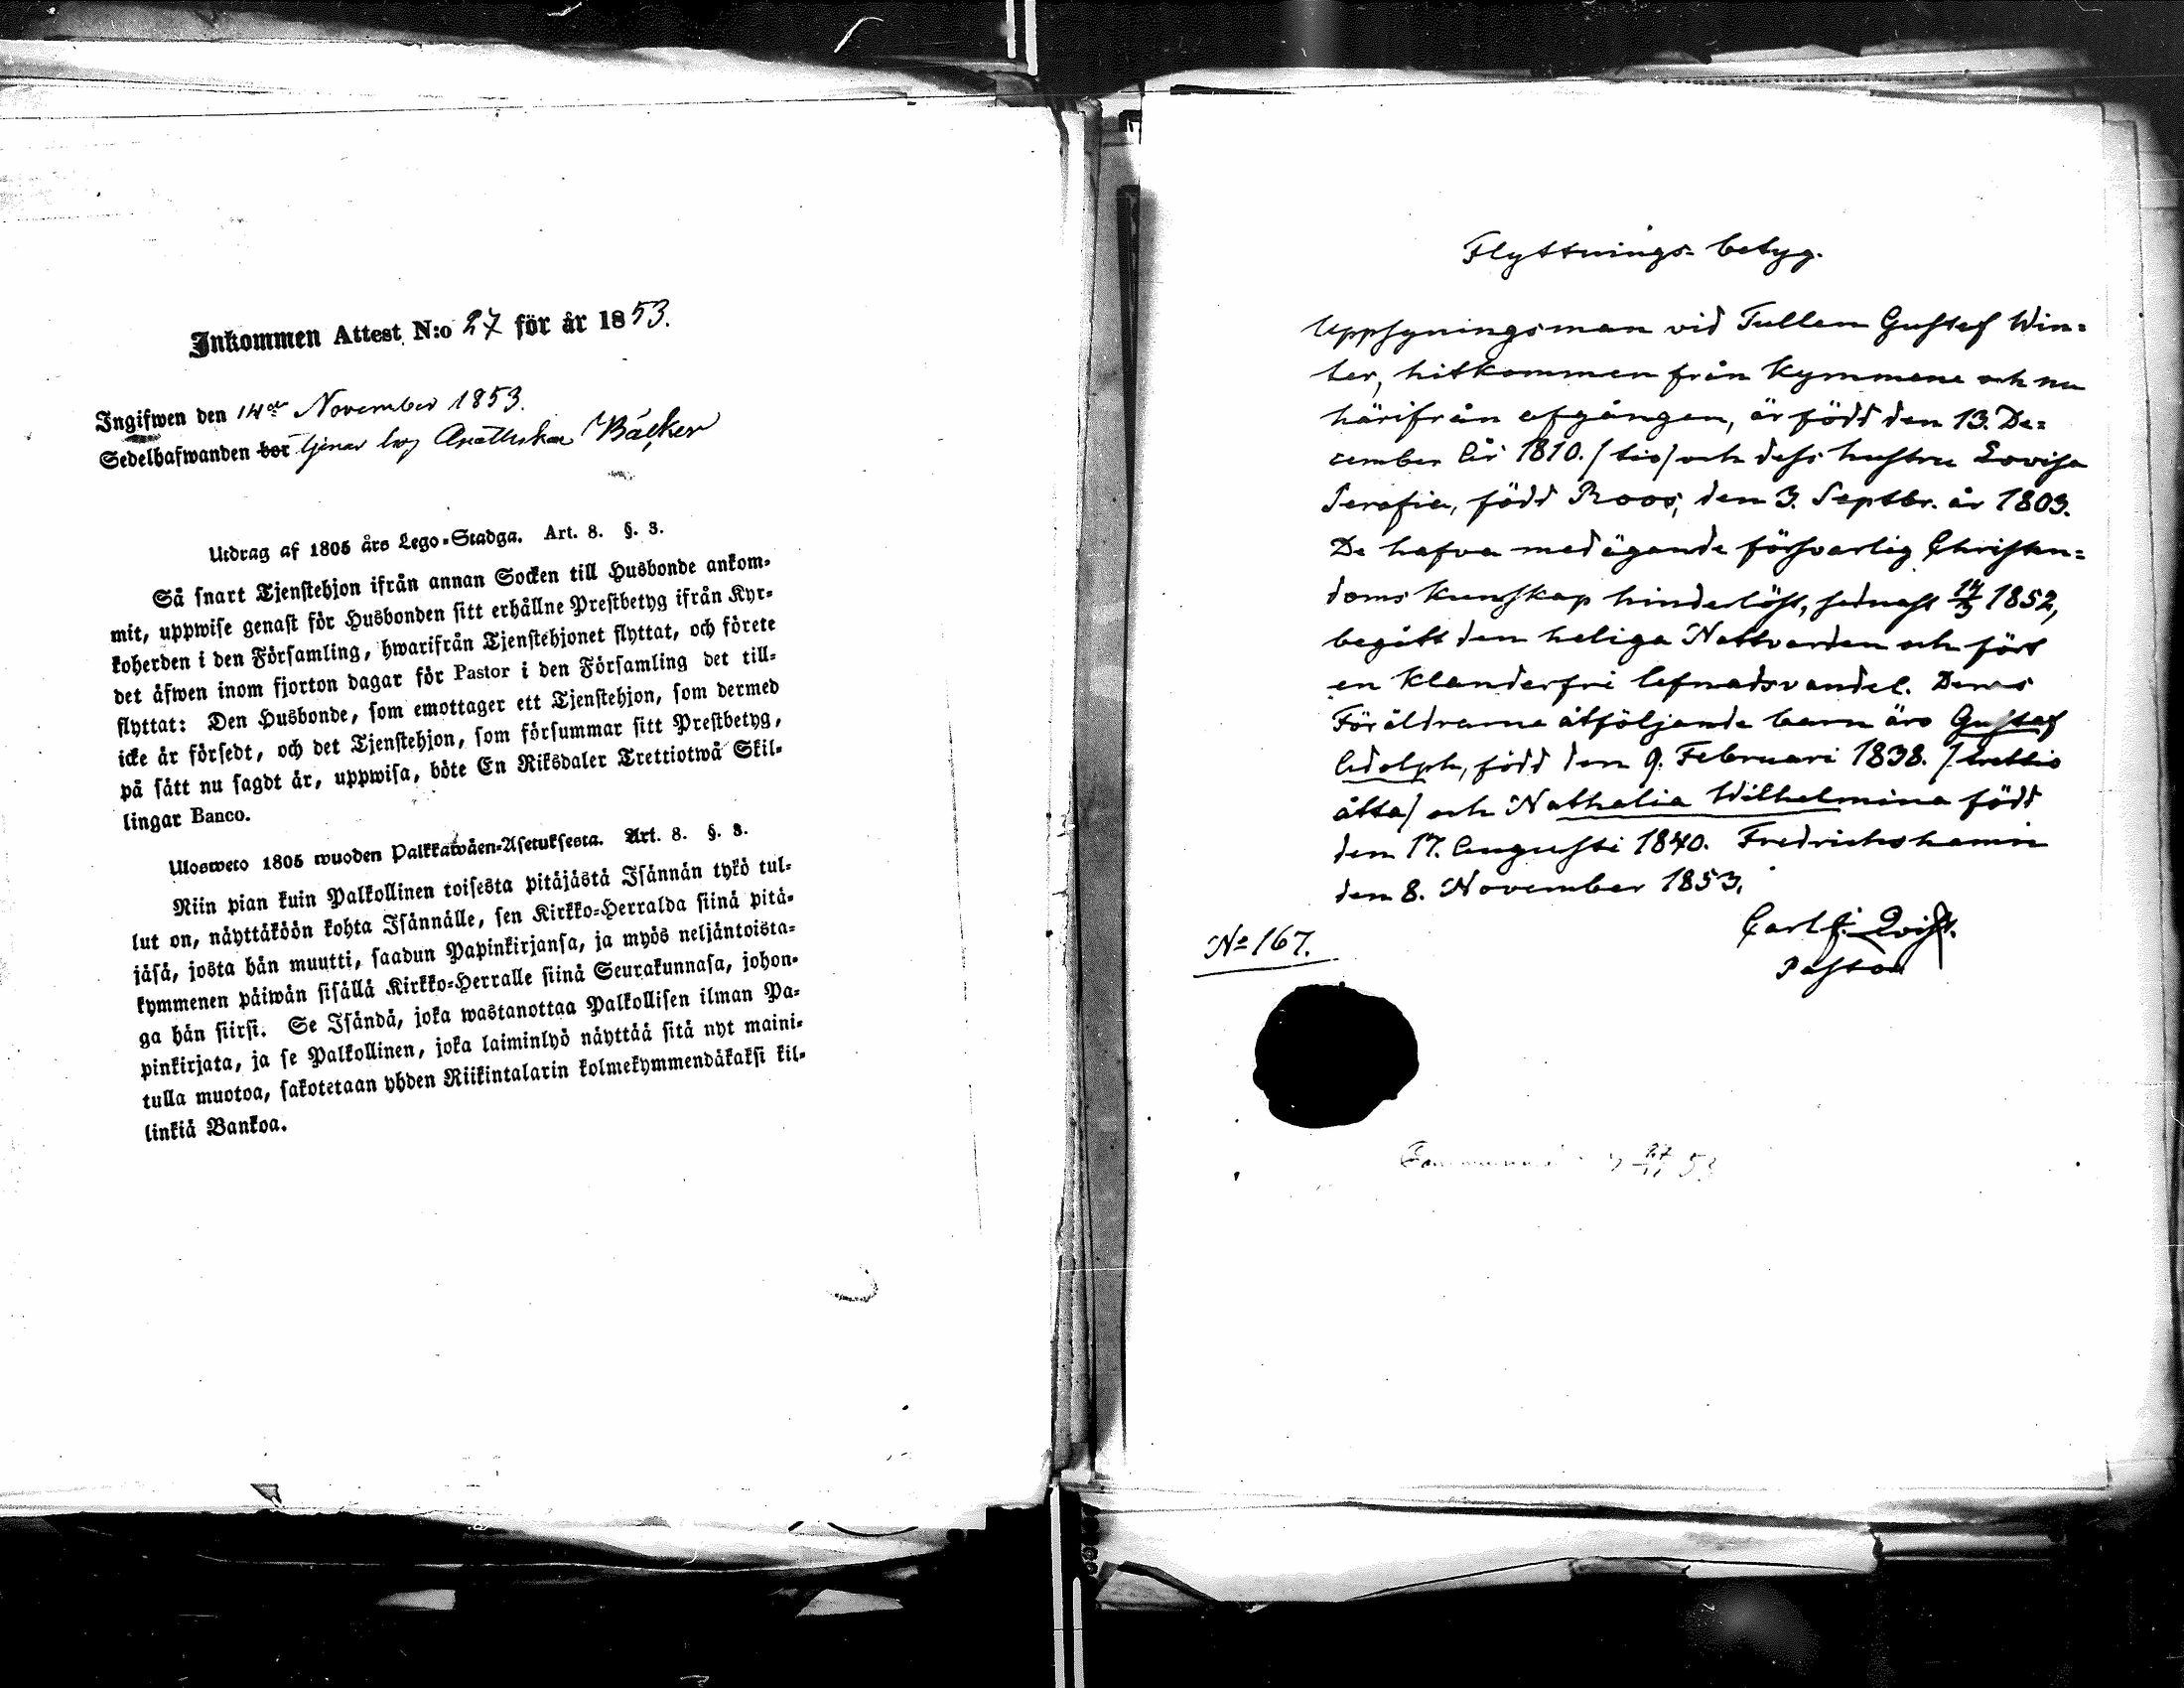 Inkommen Attest N:o 27 för år 1853.
Ingifwen den 14de November 1853.
Sedelhafwanden bor tjenar hos Apothekar Bäcker
Utdrag af 1805 års Lego-Stadga. Art. 8. §. 3.
Så snart Tjenstehjon ifrån annan Socken till Husbonde ankom-
mit, uppwise genast för Husbonden sitt erhållne Prestbetyg ifrån Kyr-
koherden i den Församling, hwarifrån Tjenstehjonet flyttat, och förete
det äfwen inom fjorton dagar för Pastor i den Församling det till-
flyttat: Den Husbonde, som emottager ett Tjenstehjon, som dermed
icke är försedt, och det Tjenstehjon, som försummar sitt Prestbetyg,
på sätt nu sagdt är, uppwisa, böte En Riksdaler Trettiotwå Skil-
lingar Banco.
Ulosweto 1805 wuoden Palkkawäen-Asetuksesta. Art. 8. §. 3.
Niin pian kuin Palkollinen toisesta pitäjästä Isännän tykö tul-
lut on, näyttäköön kohta Isännälle, sen Kirkko-Herralda siinä pitä-
jäsä, josta hän muutti, saadun Papinkirjansa, ja myös neljäntoista-
kymmenen päiwän sisällä Kirkko-Herralle siinä Seurakunnasa, johon-
ga hän siirsi. Se Isändä, joka wastanottaa Palkollisen ilman Pa-
pinkirjata, ja se Palkollinen, joka laiminlyö näyttää sitä nyt maini-
tulla muotoa, sakotetaan yhden Riikintalarin kolmekymmendäkaksi kil-
linkiä Bankoa.
Flyttnings-betyg.
Uppsyningsman vid Tullen Gustaf Win-
ter, hitkommen från Kymmene och nu
härifrån afgången, är född den 13. De-
cember år 1810. /tio/ och dess hustru Lovisa
Serafia, född Roos, den 3. Septbr. år 1803.
De hafva med ägande försvarlig Christen-
doms kunskap hinderlöst, sednast 14/3 1852,
begått den heliga Nattvarden och fört
en klanderfri lefnadsvandel. Deras
Föräldrarne åtföljande barn äro Gustaf
Adolph, född den 9. Februari 1838. /trettio
åtta/ och Nathalia Wilhelmina född
den 17. Augusti 1840. Fredrichshamn
den 8. November 1853.
Carl J. Qvist.
Pastor
No 167.